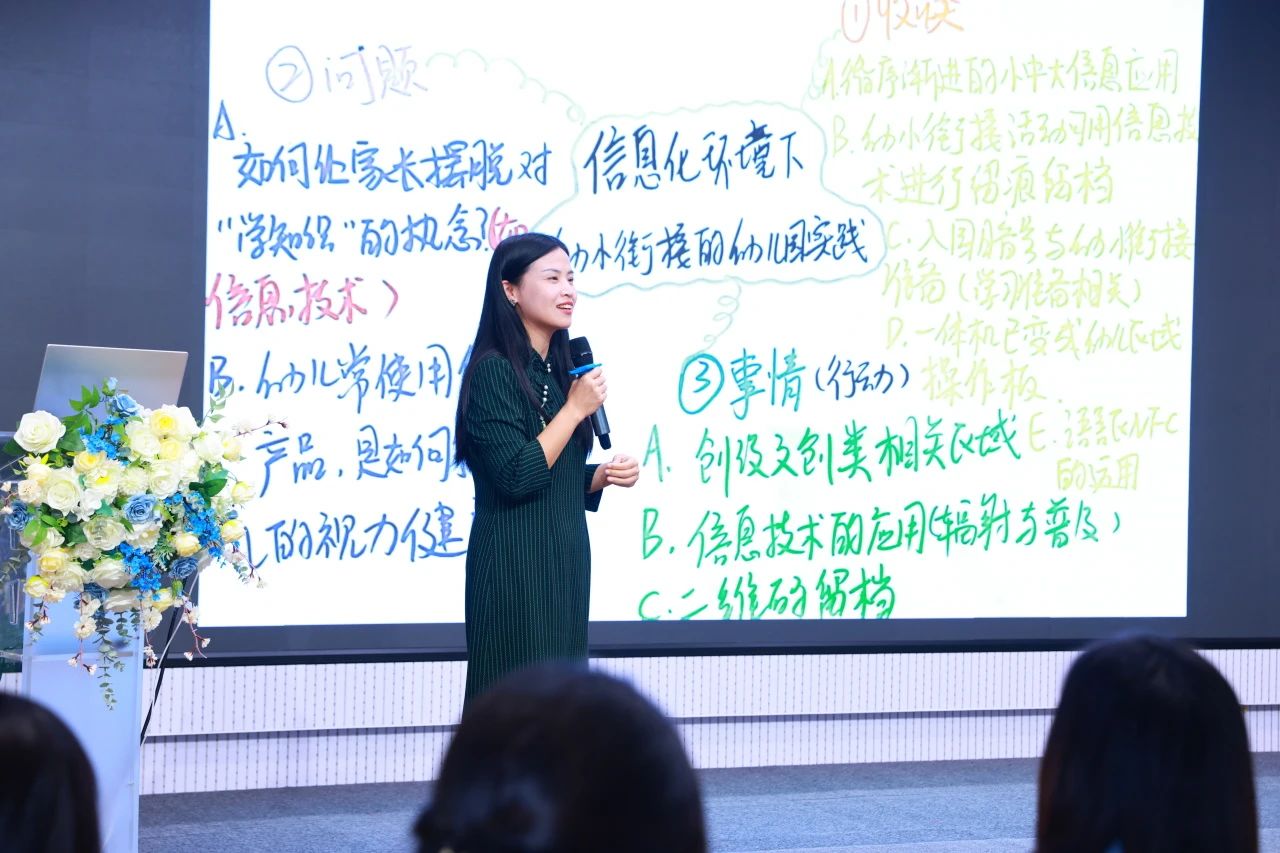 信息化环境下
幼小衔接的幼儿园实践
①收获
A.循序渐进的小中大信息应用
B.幼小衔接活动可用信息技
术进行留痕留档
C.入园
与幼小衔接
准备(学习准备相关)
D.一体机已变成幼儿区域
操作板
E.语言区NFC
的运用
②问题
A.
如何让家长摆脱对
“学知识”的执念?(如
信息技术)
B.幼儿常使用
产品,是如何
的视力健
③事情(行动)
A.创设文创类相关区域
B.信息技术的应用(辐射与普及)
C.二维码留档